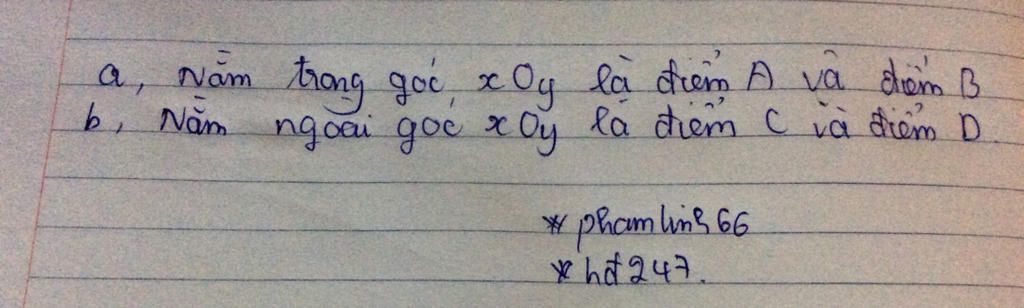 a, Nằm trong góc xOy là điểm A và điểm B
b, Nằm ngoài góc xOy là điểm C và điểm D.
* phamlinh66
* hđ247.